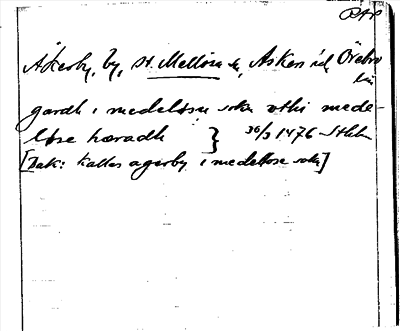 PAP
Åkerby, by, St. Mellösa sn, Askers hd, Örebro
län
gardh i medeløsa sokn vthi mede-
løse hæradh } 30/3 1476 Sthlm
[Bak: kallas agerby i medeløse sokn]